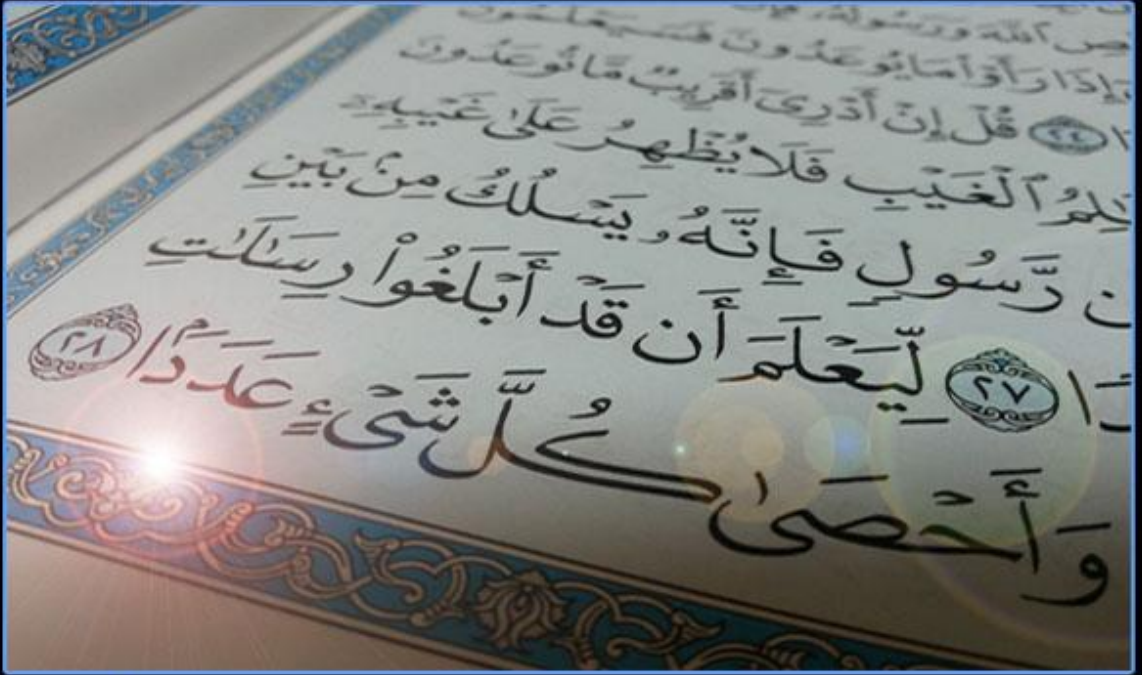 ٱللَّهِ وَرَسُولَهُۥ
وَإِذَا رَأَوْا۟ مَا يُوعَدُونَ فَسَيَعْلَمُونَ
٢٤ قُلْ إِنْ أَدْرِىٓ أَقَرِيبٌ مَّا تُوعَدُونَ
ٱلْغَيْبِ فَلَا يُظْهِرُ عَلَىٰ غَيْبِهِۦٓ
رَّسُولٍ فَإِنَّهُۥ يَسْلُكُ مِنۢ بَيْنِ
٢٧ لِّيَعْلَمَ أَن قَدْ أَبْلَغُوا۟ رِسَٰلَٰتِ
وَأَحْصَىٰ كُلَّ شَىْءٍ عَدَدًۢا ٢٨